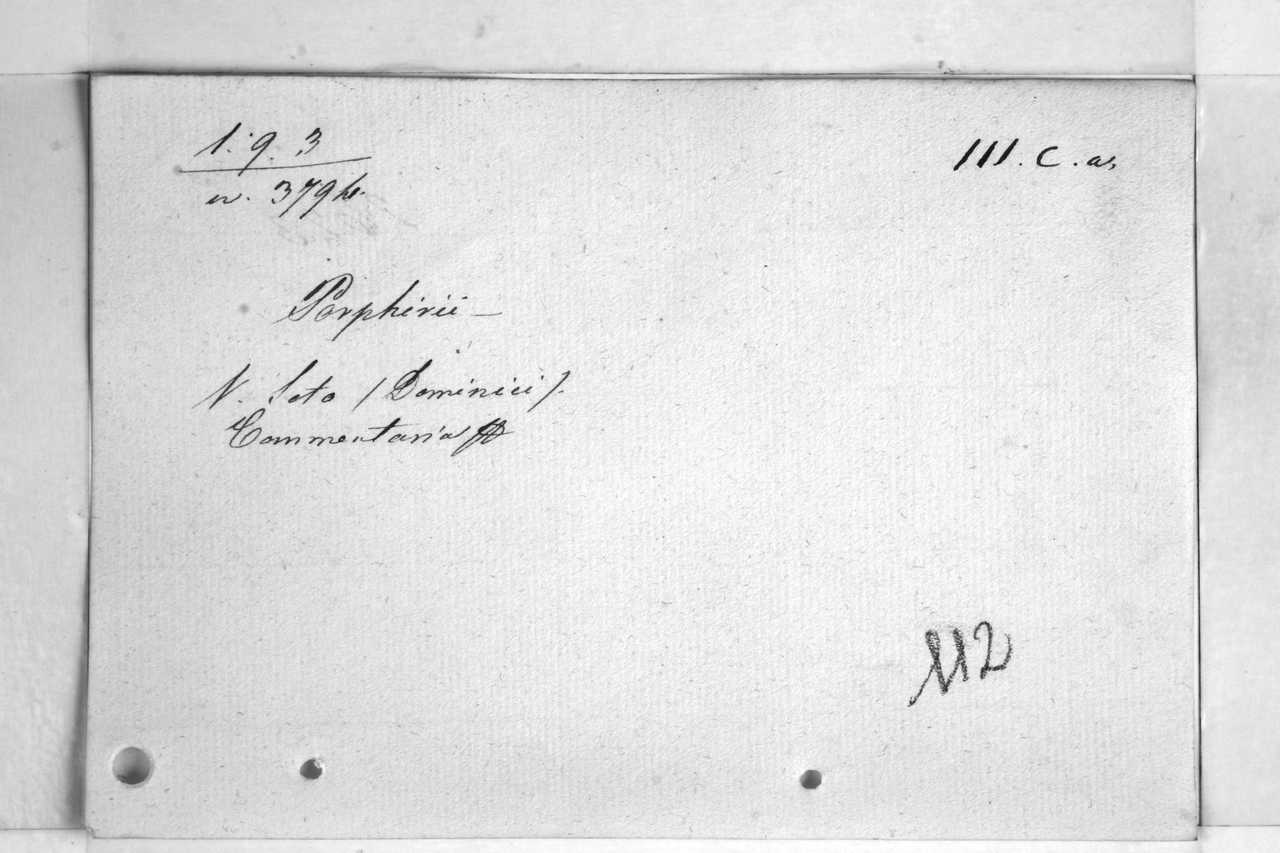 1. 9. 3
III. C. a.
n. 379
Porphirii —
V. Soto (Dominici).
Commentaria
112